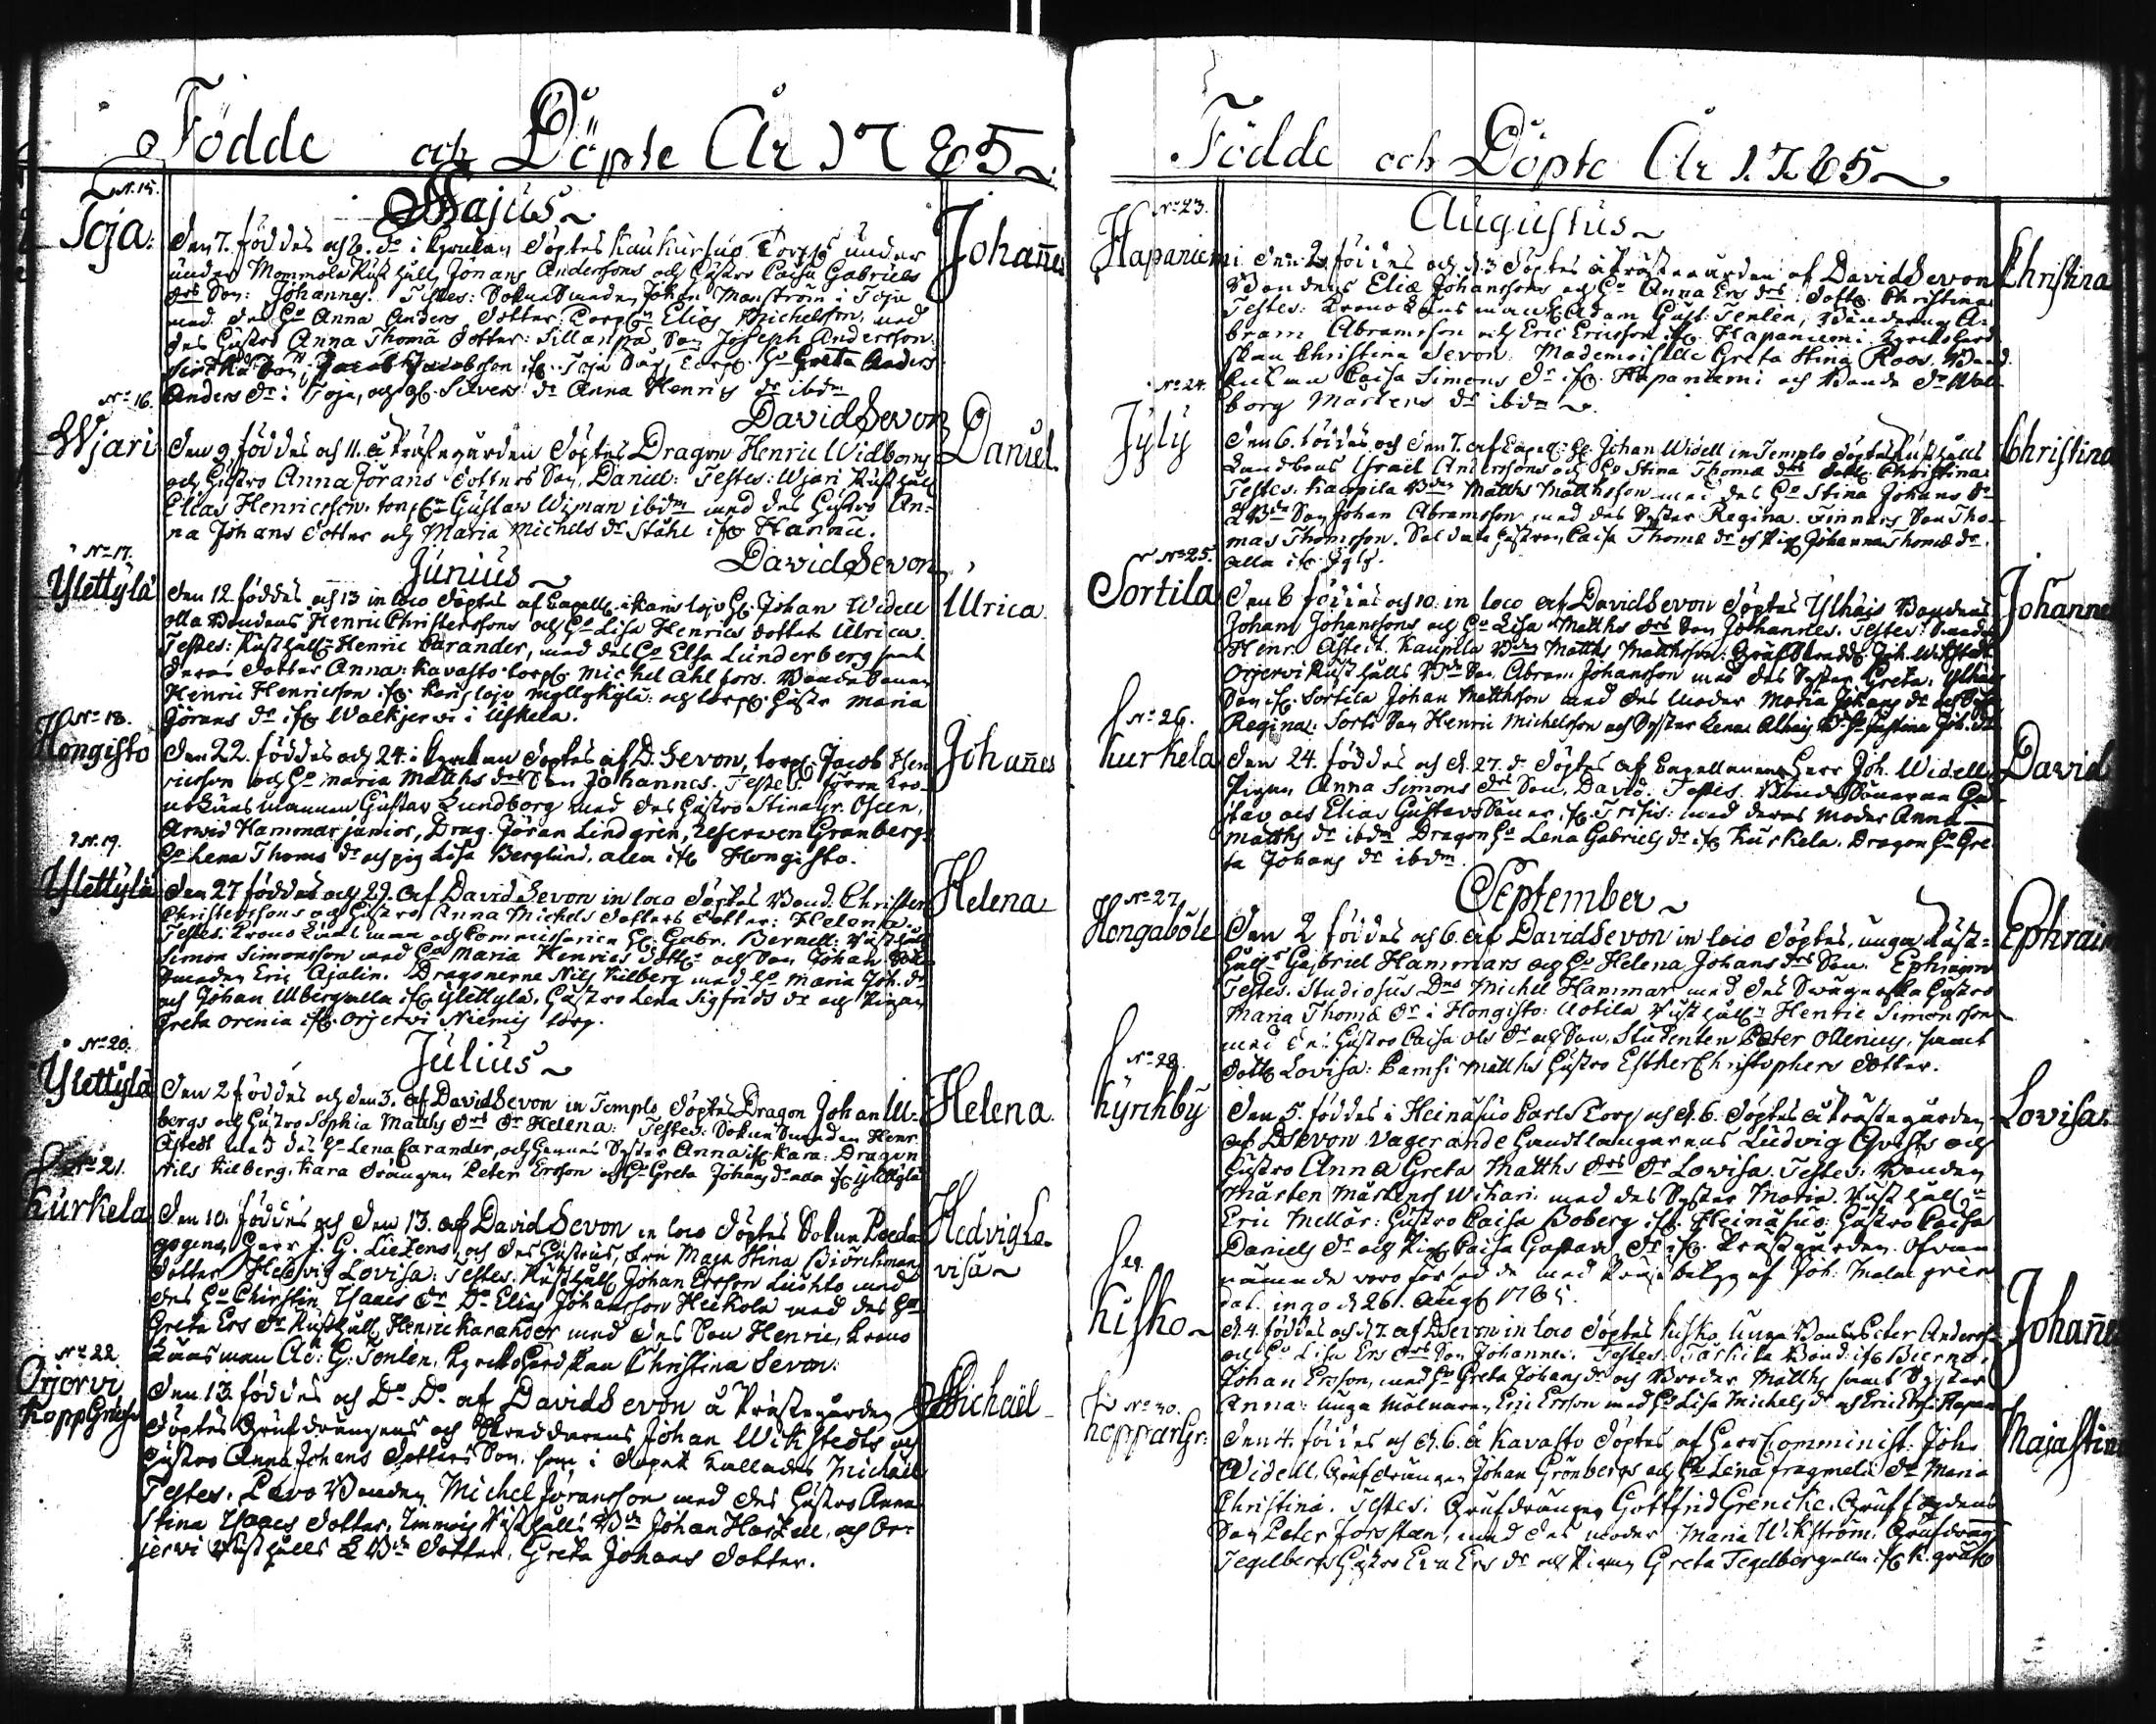 Födde och Döpte År 1785
Majus
N. 15.
Toja. Den 7. föddes och 8. d:o i kyrkan döptes Torp. under
under Mommola Rusthåll, Jonans Anderssons och hustro Caisa Gabriels
drs Son: Johannes. Testes: Sokne Smeden Johan Manström i Toja
med des h:o Anna Anders dotter, Elias Michelsson, med
des hustro Anna Thomä dotter: Sillanpä Son Joseph Andersson.
Son, Jacob Jacobsson if. Toja H:o Greta Anders
Anders d:r i Toja, och Anna Henrics d:r ibdm
David Sevon
Johañes
N:o 16.
Wjari Den 9. föddes och 11. å Prästegården döptes Dragon Henric Widboms
och hustro Anna Jörans dotters Son, Daniel: Testes: Wjari Rusthåll
Elias Henricsson. Gustav Wiman ibdm med des hustro An-
na Johans dotter och Maria Michels d:r Ståhl
David Sevon
Daniel.
Junius
N:o 17.
Ylettylä Den 12. föddes och 13 in loco döptes af Capell. i Karislojo H. Johan Widell
Bondens Henric Christerssons och H:o Lisa Henrics dotter Ulrica.
Testes: Rusthåll: Henric Carander, med des H:o Elsa Lunderberg samt
deras dotter Anna: Kavasto torp. Michel Ahlfors. Bonde Sonen
Henric Henricsson Karislojo och torp. Hustr Maria
Jörans d:r Walkjerwi i Uskela.
Ulrica
N:o 18.
Hongisto Den 22. föddes och 24. i kyrkan döptes af D. Sevon, torp. Jacob Hen
ricsson och H:o Maria Matths drs Son Johannes. Testes:
Gustav Lundborg med des hustro Stina Gr.
Arwid Hammar junior, Drag. Jöran Lindgren, Granbergs
H:o Lena Thoms d:r och pig Lisa Berglund, alla if. Hongisto.
Johañes
N. 19.
Ylettylä Den 27 föddes och 29. af David Sevon in loco döptes Bond. Christer
Christerssons och hustro Anna Michels dotters dotter: Helena.
Testes: Krono Länsman och Commissarien H. Gabr. Bernell: Rusthåll
Simon Simonsson med H:o Maria Henrics dott. och Son Johan:
Smeden Eric Ajalin. Dragonerne Nils Kilberg med H:o Maria Joh. dr
och Johan Ulberg alla if. Ylettylä. Hustro Lena Sigfrids dr och Pigan
Greta Orenia if. Orjervi Niemis torp.
Helena
Julius
N:o 20.
Ylettylä Den 2 föddes och den 3. af David Sevon in Templo döptes Dragon Johan Ul-
bergs och hustro Sophia Matths drs dr Helena: Testes: Sokne Smeden Henr.
Åstedt med des H:o Lena Carander, och hennes Syster Anna if. Kara: Dragon
Nils Kilberg, Kara drängen Peter Ersson och H:o Greta Johans dr alla if. Ylettylä
Helena.
N:o 21.
Kurkela Den 10. föddes och den 13. af David Sevon in loco döptes Sokne Pæda-
gogens, Herr J. G. och des hustrus, Fru Maja Stina Biörckmans
dotter Hedvig Lovisa: Testes: Rusthåll. Johan Ersson Luuhto med
des H:o Christin Isaacs d:r D:o Elias Johansson Heikola med des H:o
Greta Ers d:r Rusthåll. Henric Karander med des Son Henric, Krono
Länsman Ad: G. Tenlen, Christina Sevon.
Hedvig Lo-
visa
N:o 22
Orjervi
KoppGrufv: Den 13. föddes och D:o D:o af David Sevon å Prästegården
döptes Grufdrängens och Skreddarens Johan Wikstedts och
hustro Anna Johans dotters Son, som i dopet kallades Michaël
Testes: Lavo Bonden Michel Joransson med des Hustro Anna
Stina Isaacs dotter, Rusthålls Johan och Or-
jervi Rusthålls dotter, Greta Johans dotter.
Michaël
Födde och Döpte År 1785
Augustus
N:o 23.
Hapaniemi Den 2 föddes och d. 3 döptes å Prästegården af David Sevon
Bondens Eliæ Johanssons och H:o Anna Ers drs: dott. Christina
Testes: Krono Länsman H. Adam Gust: Tenlen, Bönderna A-
bram Abramsson och Eric Ericsson if. Hapaniemi.
Christina Sevon. Mademoiselle Greta Stina Roos. Bond
Caisa Simons dr if. Hapaniemi och Bonde dr Wal-
borg Mårtens dr ibdm
Christina
N:o 24.
Jyly Den 6. föddes och den 7. af Capel: H. Johan Widell in Templo döptes Rusthålls
Landbons Israel Anderssons och H:o Stina Thomæ drs dott. Christina:
Testes: Kaupila Matths Matthsson med des H:o Stina Johans dr
Son Johan Abramsson med des Syster Regina. Finnans Son Tho-
mas Thomsson. Soldats hustron Caisa Thomæ dr och Pig Johanna Thomæ dr.
alla if. Jyly.
Christina
N:o 25.
Sortila Den 8 föddes och 10. in loco af David Sevon döptes Ylhäis Bondens
Johan Johanssons och H:o Lisa Matths drs Son Johannes. Testes: Smeden
Henr. Åstedt. Kaupila Matths Matthsson: Joh. Wikstedt
Orjervi Rusthålls Son Abram Johansson med des Syster Greta: Ylhäis
Son if. Sortila Johan Matthsson med des Moder Maria Johans dr
Regina: Sorti Son Henric Michelsson och Syster Lena:
Johannes
N:o 26.
Kurkela Den 24. föddes och d. 27. d:o döptes af Capellanen Herr Joh. Widell
Pigan Anna Simons drs Son, David. Testes: Bonde Sönerna Gu-
stav och Elias Gustavs Söner, if. med deras Moder Anna
Matths dr ibdm Dragon H:o Lena Gabriels dr if. Kurkela. Dragon H:o Gre-
ta Johans dr ibdm.
David
September
N:o 27.
Hongaböle Den 2 föddes och 6. af David Sevon in loco döptes, unga Rust-
håll: Gabriel Hammars och H:o Helena Johans drs Son. Ephraim
Testes. Studiosus Dns Michel Hammar med des Swägerska hustro
Maria Thomæ dr i Hongisto: Aotila Rusthåll: Henric Simonsson
med des Hustro Caisa Ols dr och Son, Studenten Peter Ollenius, samt
dott. Lovisa: Matths hustro Esther Christophers dotter.
Ephraim
N:o 28.
Kyrckby Den 5. föddes i Heinäsuo Carls Torp och d. 6. döptes å Prästegården
af D. Sevon Ludvig och
hustro Anna Greta Matths drs dr Lovisa. Testes: Bonden
Mårten Mårtens Wikari med des Syster Maria. Rusthåll:
Eric Mellor: Hustro Caisa Boberg if. Heinäsuo. Hustro Caisa
Daniels dr och Pig Caisa dr if. Prästgården. Ofvan
nämnde voro försedde med af Joh: Malmgren
dat. d. 26. Aug. 1785.
Lovisa.
29.
Kisko d. 4. föddes och d. 7. af D. Sevon in loco döptes Kisko unga Bond. Peter Anderss-
och H:o Lisa Ers drs Son Johannes. Testes: Bond: if. Bierno,
Johan Ersson, med H:o Greta Johans dr och Broder Matths samt Syster
Anna: unga Mölnaren Eric Ersson med H:o Lisa Michels dr
Johañes
N:o 30.
KopparGr: Den 4. föddes och d. 6. å Kavasto döptes af Herr Comminist: Joh.
Widell, Grufdrängen Johan Grönbergs och H:o Lena dr Maria
Christina. Testes: Grufdrängen Gottfrid Grencke, Gruffogdens
Son Peter Forsstén, med des moder Maria Wikström: Grufdräng
Tegelbergs Hustro Eva Ers dr och Pigan Greta Tegelberg alla if. K. grufv
Maja Stina